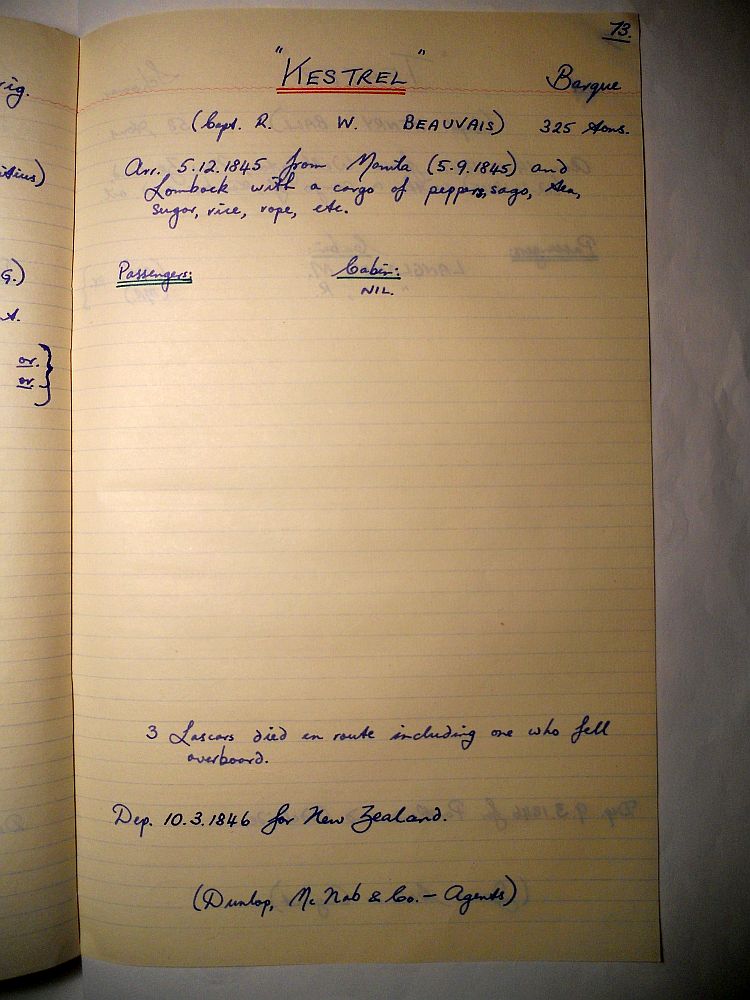 73.
"KESTREL" Barque
(Capt. R. W. BEAUVAIS) 325 tons.
Arr. 5.12.1845 from Manila (5.9.1845) and
Lombock with a cargo of peppers, sago, tea,
sugar, rice, rope, etc.
Passengers: Cabin:
NIL.
3 Lascars died en route including one who fell
overboard.
Dep. 10.3.1846 for New Zealand.
(Dunlop, McNab & Co. — Agents)
ig.
G.)
or.
or.